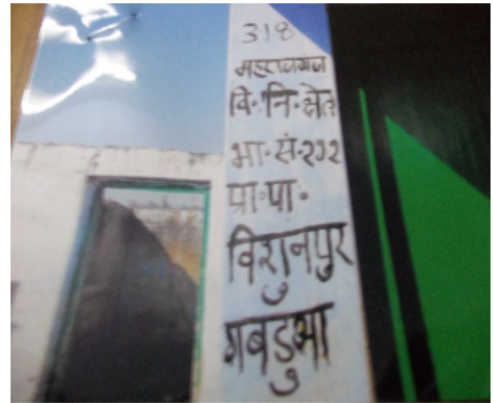 318
महाराजगंज
वि॰नि॰क्षेत्र
भा॰सं॰२७२
प्रा॰पा॰
विशुनपुर
गबडुआ